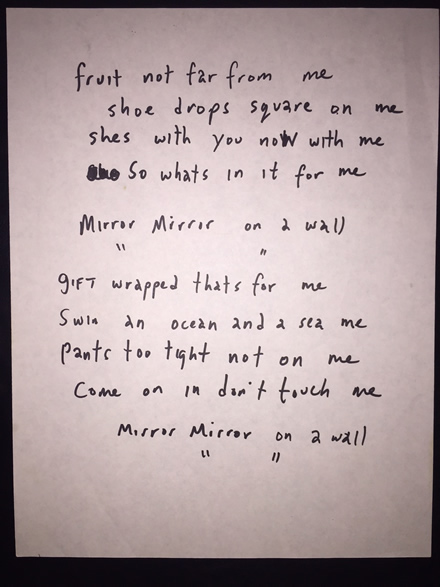 fruit not far from me
shoe drops square on me
shes with you now with me
So whats in it for me
Mirror Mirror on a wall
" "
GIFT wrapped thats for me
Swim an ocean and a sea me
Pants too tight not on me
Come on in don't touch me
Mirror Mirror on a wall
" "